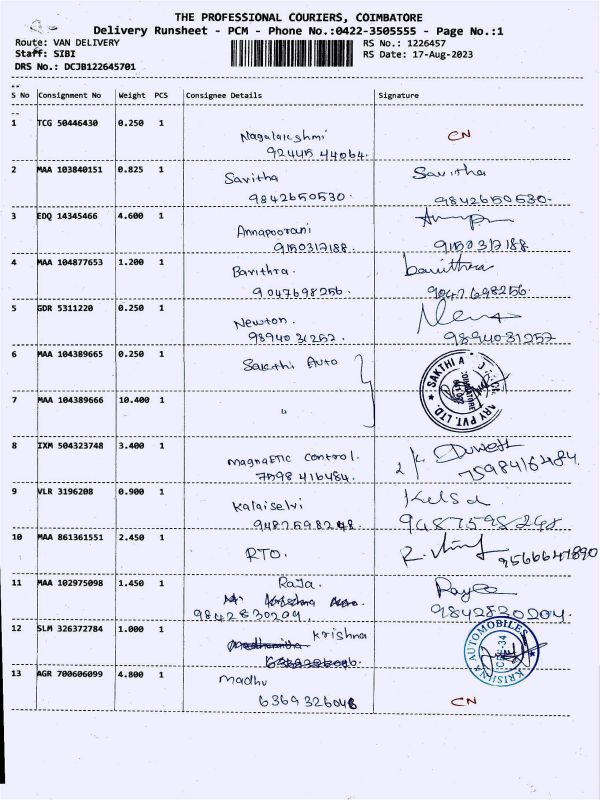 THE PROFESSIONAL COURIERS, COIMBATORE
Delivery Runsheet - PCM - Phone No.:0422-3505555 - Page No.:1
Route: VAN DELIVERY RS No.: 1226457
Staff: SIBI RS Date: 17-Aug-2023
DRS No.: DCJB122645701
S No Consignment No Weight PCS Consignee Details Signature
1 TCG 50446430 0.250 1
Nagalakshmi CN
92445 44064.
2 MAA 103840151 0.825 1
Savitha Savitha
9842650530. 9842650530.
3 EDQ 14345466 4.600 1
Annapoorani
9150317188. 9150317188
4 MAA 104877653 1.200 1
Bavithra. bavithra
9047698256. 9047698256.
5 GDR 5311220 0.250 1
Newton.
9894031257. 9894031257
6 MAA 104389665 0.250 1 Sakthi Auto
SAKTHI A
COIMBATORE
ARY PVT. LTD.
7 MAA 104389666 10.400 1 "
8 IXM 504323748 3.400 1
magnetic control.
7598416484. 7598416484
9 VLR 3196208 0.900 1
Kalaiselvi
9487598248 9487598248
10 MAA 861361551 2.450 1
RTO. 9566647890
11 MAA 102975098 1.450 1 Raja.
9842830204. 9842830204.
12 SLM 326372784 1.000 1
Krishna
KRISHNA AUTOMOBILES
13 AGR 700606099 4.800 1
madhu
6369326048 CN